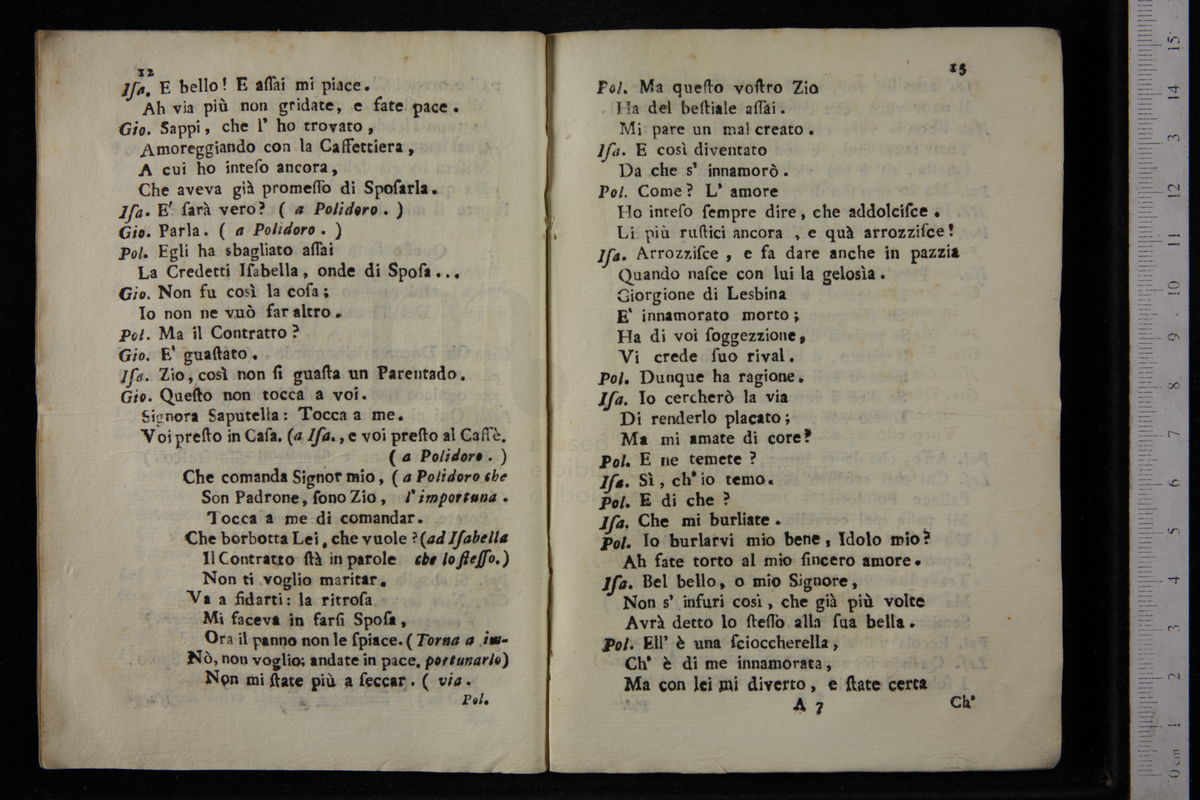 12
Iſa. E bello! E aſſai mi piace.
Ah via più non gridate, e fate pace.
Gio. Sappi, che l' ho trovato,
Amoreggiando con la Caffettiera,
A cui ho inteſo ancora,
Che aveva già promeſſo di Spoſarla.
Iſa. E' ſarà vero? ( a Polidoro. )
Gio. Parla. ( a Polidoro. )
Pol. Egli ha sbagliato aſſai
La Credetti Iſabella, onde di Spoſa...
Gio. Non fu così la coſa;
Io non ne vuò far altro.
Pol. Ma il Contratto?
Gio. E' guaſtato.
Iſa. Zio, così non ſi guaſta un Parentado.
Gio. Queſto non tocca a voi.
Signora Saputella: Tocca a me.
Voi preſto in Caſa. (a Iſa., e voi preſto al Caffè.
( a Polidoro. )
Che comanda Signor mio, ( a Polidoro che
Son Padrone, ſono Zio, l'importuna.
Tocca a me di comandar.
Che borbotta Lei, che vuole? (ad Iſabella
Il Contratto ſtà in parole che lo ſteſſo.)
Non ti voglio maritar.
Va a fidarti: la ritroſa
Mi faceva in farſi Spoſa,
Ora il panno non le ſpiace. (Torna a im-
Nò, non voglio; andate in pace. portunarlo)
Non mi ſtate più a ſeccar. ( via.
Pol.
13
Pol. Ma queſto voſtro Zio
Ha del beſtiale aſſai.
Mi pare un mal creato.
Iſa. E così diventato
Da che s' innamorò.
Pol. Come? L' amore
Ho inteſo ſempre dire, che addolciſce.
Li più ruſtici ancora, e quà arrozziſce!
Iſa. Arrozziſce, e fa dare anche in pazzia
Quando naſce con lui la geloſìa.
Giorgione di Lesbina
E' innamorato morto;
Ha di voi ſoggezzione,
Vi crede ſuo rival.
Pol. Dunque ha ragione.
Iſa. Io cercherò la via
Di renderlo placato;
Ma mi amate di core?
Pol. E ne temete?
Iſa. Sì, ch' io temo.
Pol. E di che?
Iſa. Che mi burliate.
Pol. Io burlarvi mio bene, Idolo mio?
Ah fate torto al mio ſincero amore.
Iſa. Bel bello, o mio Signore,
Non s' infuri così, che già più volte
Avrà detto lo ſteſſo alla ſua bella.
Pol. Ell' è una ſcioccherella,
Ch' è di me innamorata,
Ma con lei mi diverto, e ſtate certa
A 7 Ch'
0 cm 1 2 3 4 5 6 7 8 9 10 11 12 13 14 15